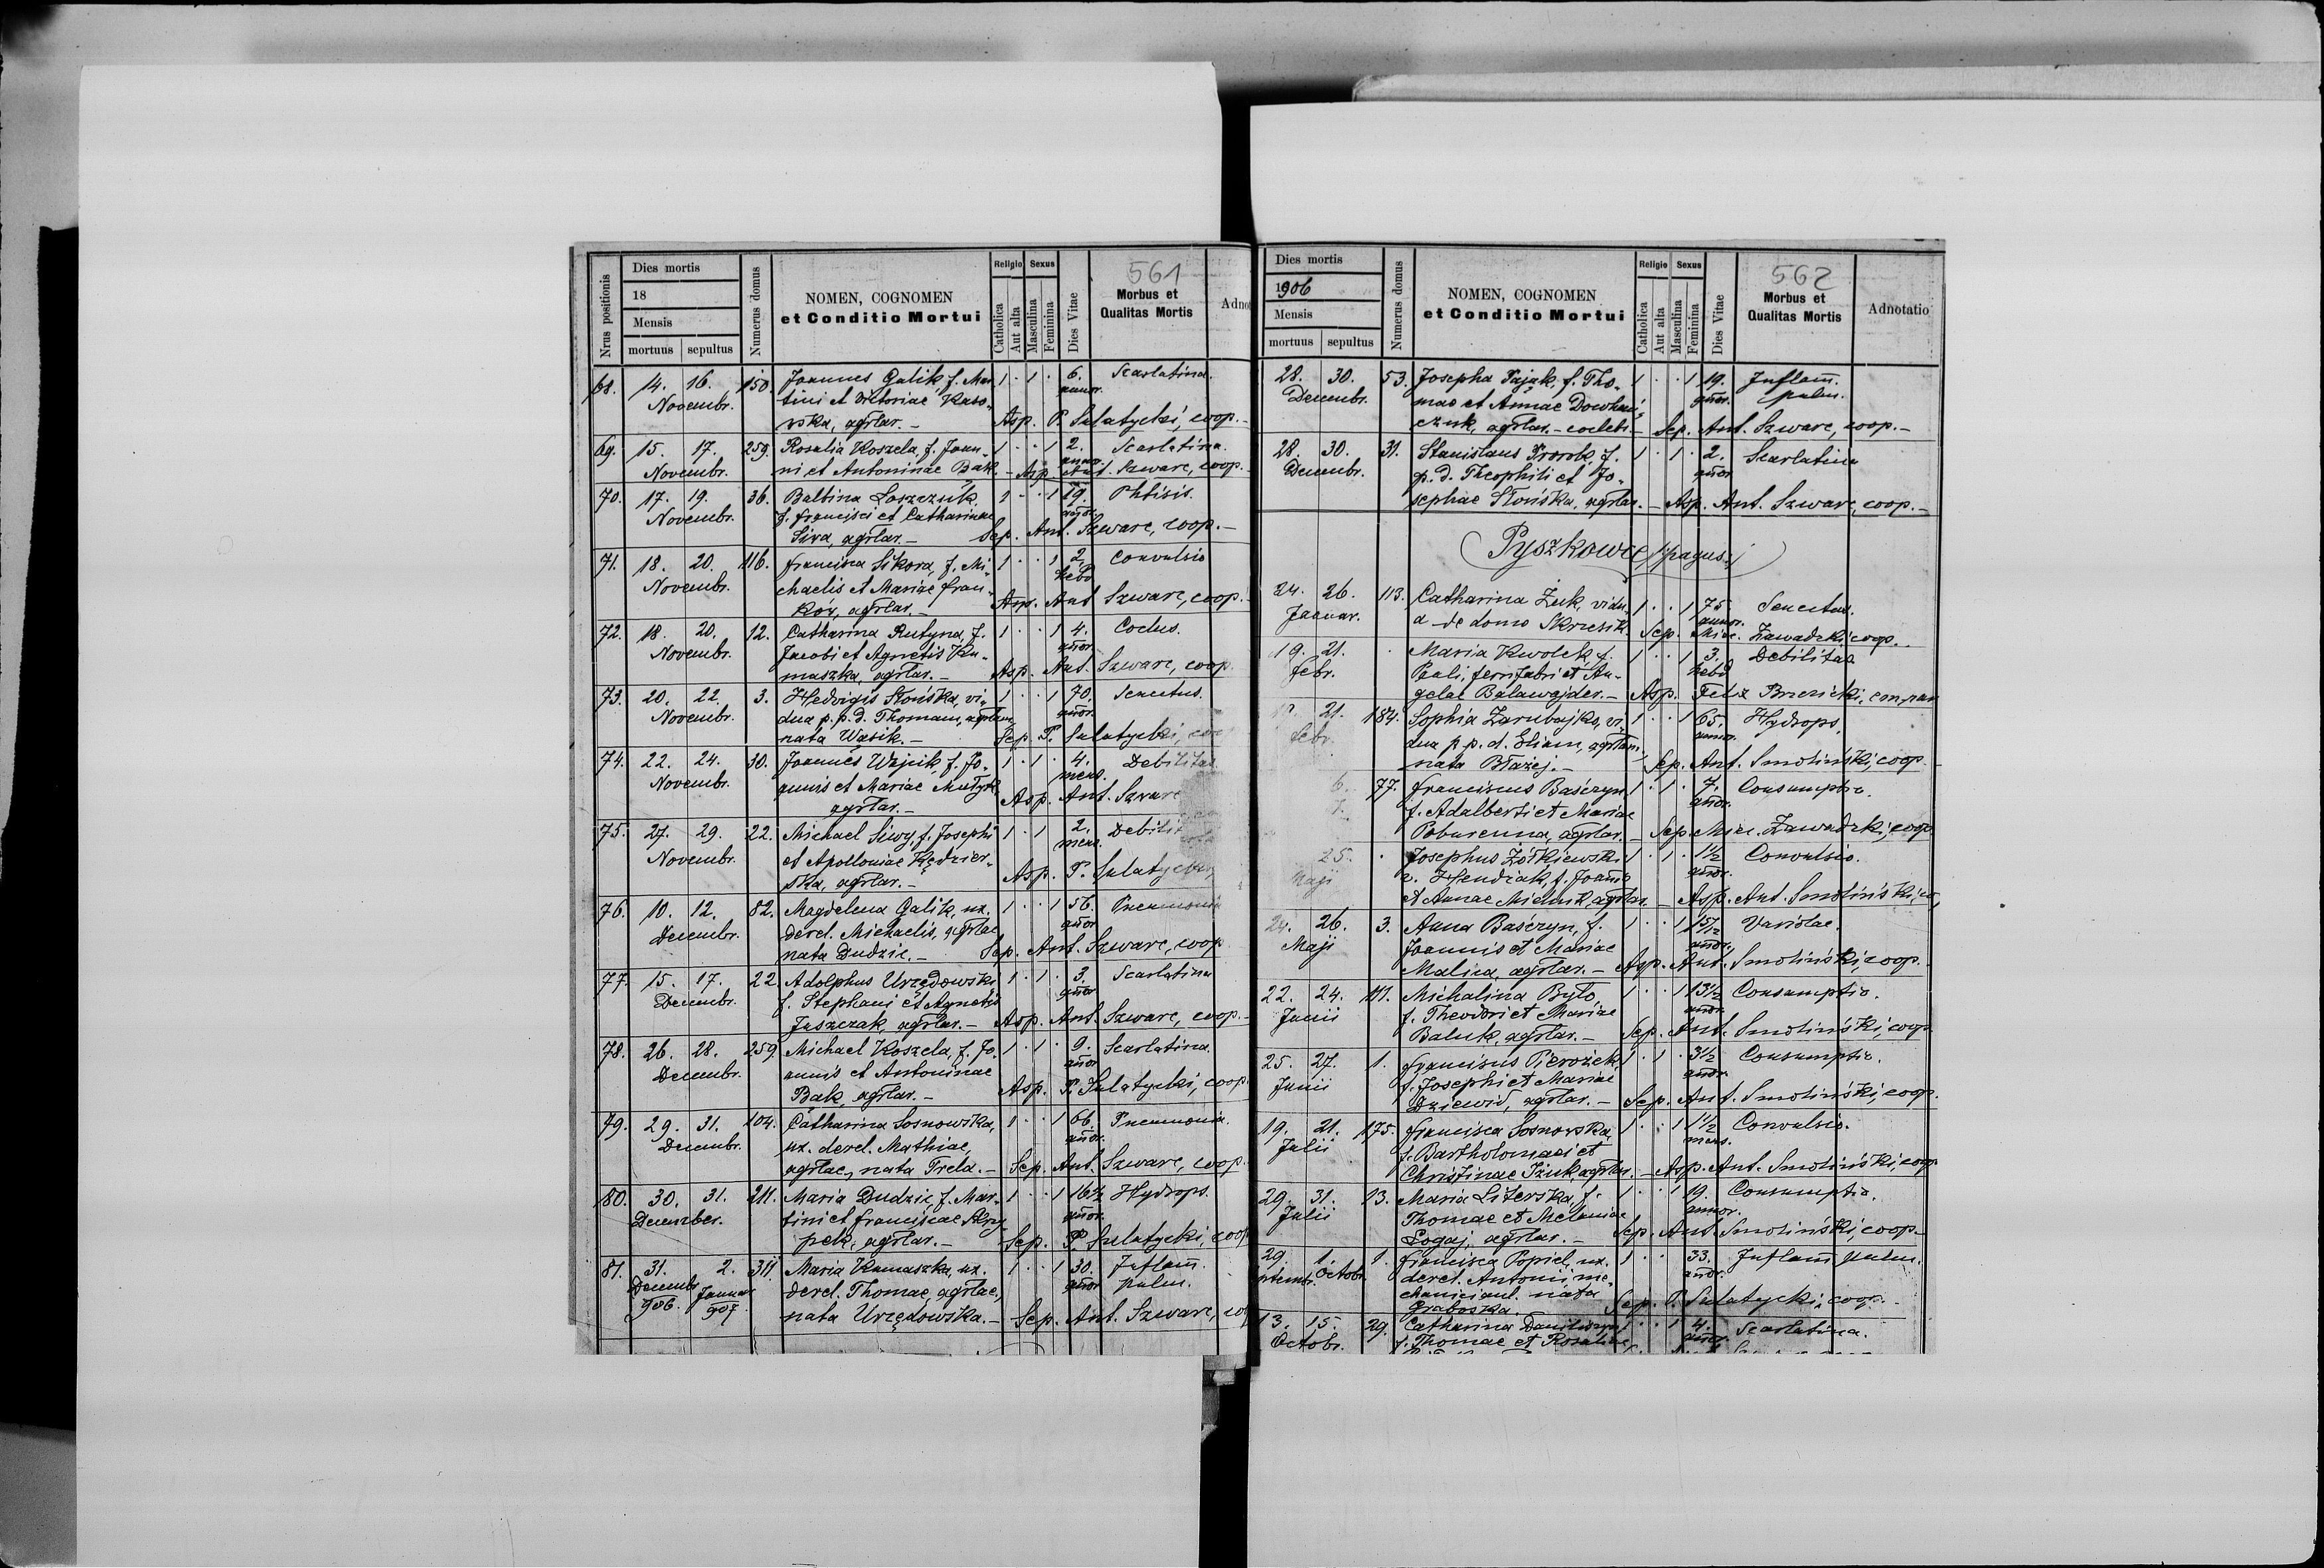 561
Nrus positionis
Dies mortis
18
Mensis
mortuus
sepultus
Numerus domus
NOMEN, COGNOMEN
et Conditio Mortui
Religio
Catholica
Aut alta
Sexus
Masculina
Feminina
Dies Vitae
Morbus et
Qualitas Mortis
68. 14. 16. 150. Joannes Galik, f. Mar 1 . 1 . 6. Scarlatina.
Novembr. tini et Victoriae annor.
agrlar. — Asp. P. Sulatycki, coop. —
69. 15. 17. 259. Rosalia Koszela, f. Joan- 1 . . 1 2. Scarlatina.
Novembr. ni et Antoninae Bak. — Asp. Ant. Szwarc, coop. —
70. 17. 19. 36. Balbina Loszczuk 1 . . 1 19. Phtisis.
Novembr. f. Francisci et Catharinae añor.
Siva, agrlar. — Sep. Ant. Szwarc, coop. —
71. 18. 20. 116. Francisca Sikora, f. Mi- 1 . . 1 2. Convulsio
Novembr. chaelis et Mariae Fran- hebd
agrlar. — Asp. Ant. Szwarc, coop. —
72. 18. 20. 12. Catharina Rutyna, f. 1 . . 1 4.
Novembr. Jacobi et Agnetis Ku- añor.
maszka, agrlar. — Asp. Ant. Szwarc, coop.
73. 20. 22. 3. Hedvigis Słońska, vi- 1 . . 1 70. Senectus.
Novembr. dua p. p. d. Thomam, agrlam, añor.
nata Wąsik. — Sep. P. Sulatycki,
74. 22. 24. 30. Joannes Wójcik, f. Jo- 1 . 1 . 4. Debilitas
Novembr. annis et Mariae mens.
agrlar. — Asp. Ant. Szwarc
75. 27. 29. 22. Michael Siwy, f. Josephi 1 . 1 2. Debilit
Novembr. et Apolloniae Kędzier- mens.
ska, agrlar. — Asp. P. Sulatycki
76. 10. 12. 82. Magdelena Galik, ux. 1 . . 1 56. Pneumonia
Decembr. derel. Michaelis, agrlae añor
nata Dudzic. — Sep. Ant. Szwarc, coop
77. 15. 17. 22. Adolphus Urzędowski 1 . 1 . 3. Scarlatina
Decembr. f. Stephani et Agnetis añor
Juszczak, agrlar. — Asp. Ant. Szwarc, coop. —
78. 26. 28. 259 Michael Koszela, f. Jo- 1 . 1 . 9. Scarlatina.
Decembr. annis et Antoninae añor
Bak, agrlar. — Asp. P. Sulatycki, coop.
79. 29. 31. 104. Catharina Sosnowska, 1 . . 1 66. Pneumonia.
Decembr. ux. derel. Mathiae, añor.
agrlae, nata Trela. — Sep. Ant. Szwarc, coop.
80. 30. 31. 211. Maria Dudzic, f. Mar- 1 . . 1 16½ Hydrops.
December. tini et Franciscae Skrzy añor.
pek, agrlar. — Sep. P. Sulatycki, coop
81. 31. 2. 311. Maria Kumaszka, ux. 1 . . 1 30. Inflam̄.
Decembr Januar derel. Thomae, agrlae, añor pulm.
906. 907. nata Urzędowska. — Sep. Ant. Szwarc,
562
Dies mortis
1906
Mensis
mortuus
sepultus
Numerus domus
NOMEN, COGNOMEN
et Conditio Mortui
Religio
Catholica
Aut alta
Sexus
Masculina
Feminina
Dies Vitae
Morbus et
Qualitas Mortis
Adnotatio
28. 30. 53. Josepha Pająk, f. Tho- 1 . . 1 19. Inflam̄.
Decembr. mae et Annae añor. pulm.
agrlar. — coelebs. — Sep. Ant. Szwarc, coop. —
28. 30. 31. Stanislaus Prorok, f. 1 . 1 . 2. Scarlatina
Decembr. p. d. Theophili et Jo- añor
sephae Słońska, agrlar. — Asp. Ant. Szwarc, coop. —
Pyszkowce /pagus/
24. 26. 113. Catharina Żuk, vidu- 1 . . 1 75 Senectus.
Januar. a — de domo Skrzesik. Sep. Mic. Zawadzki, coop.
19. 21. . Maria Kwolek, f. 1 . . 1 3. Debilitas
Febr. Pauli, ferri fabri et An- hebd
gelae Balawajder. — Asp. Felix
21. 184. Sophia Zarubajko, vi 1 . . 1 65. Hydrops.
Febr. dua p. p. d. Eliam, agrlam,
nata Błażej. — Sep. Ant. Smoliński, coop.
6. 77. Franciscus Baśczyn 1 . 1 . 7. Consumptio.
f. Adalberti et Mariae añor.
agrlar. — Sep. Mic. Zawadzki, coop
25. . Josephus Żółkiewski 1 . 1 . 1½ Convulsio.
Maji v. Hendzak, f. Joannis añor.
et Annae Mielnik, agrlar. — Asp. Ant. Smoliński,
24. 26. 3. Anna Baśczyn, f. 1 . . 1 Variolae.
Maji Joannis et Mariae añor.
Malica, agrlar. — Asp. Ant. Smoliński, coop.
22. 24. 111. Michalina Było, 1 . . 1 13½ Consumptio.
Junii f. Theodori et Mariae añor.
Baluk, agrlar. — Sep. Ant. Smoliński, coop
25. 27. 1. Franciscus Pierożek, 1 . 1 . 3½ Consumptio.
Junii f. Josephi et Mariae añor.
agrlar. — Sep. Ant. Smoliński, coop.
19. 21. 175. Francisca Sosnowska, 1 . . 1 1½ Convulsio.
Julii f. Bartholomaei et mens.
Christinae agrlar. — Asp. Ant. Smoliński, coop
29. 31. 13. Maria Literska, f. 1 . . 1 19. Consumptio.
Julii Thomae et Melaniae annor.
Łogaj, agrlar. — Sep. Ant. Smoliński, coop. —
29 1. 1. Francisca Popiel, ux. 1 . . 33. Inflam̄ pulm.
Octobr. derel. Antonii me- añor.
nata
Graboska. Sep. P. Sulatycki, coop. —
13. 15. 29. Catharina 1 . . 1 4. Scarlatina.
Octobr. f. Thomae et Rosaliae añor.